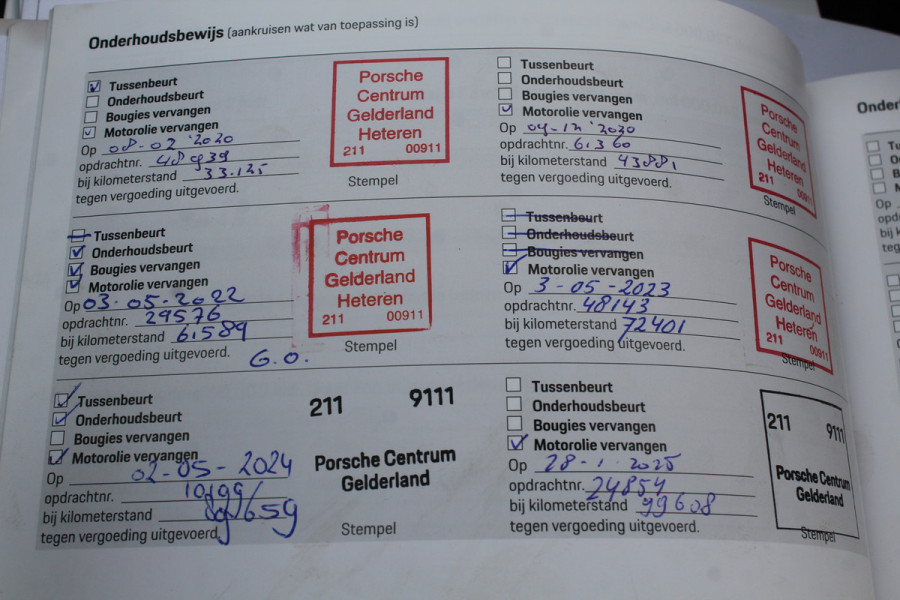 Onderhoudsbewijs (aankruisen wat van toepassing is)
Tussenbeurt
Onderhoudsbeurt
Bougies vervangen
Motorolie vervangen
Op 08-02 '2020
opdrachtnr. 48939
bij kilometerstand 33.125
tegen vergoeding uitgevoerd.
Porsche
Centrum
Gelderland
Heteren
211 00911
Stempel
Tussenbeurt
Onderhoudsbeurt
Bougies vervangen
Motorolie vervangen
Op 04-12 '2020
opdrachtnr. 6.360
bij kilometerstand 43881
tegen vergoeding uitgevoerd.
Porsche
Centrum
Gelderland
Heteren
211 00911
Stempel
Tussenbeurt
Onderhoudsbeurt
Bougies vervangen
Motorolie vervangen
Op 03-05-2022
opdrachtnr. 29576
bij kilometerstand 61.589
tegen vergoeding uitgevoerd. G.O.
Porsche
Centrum
Gelderland
Heteren
211 00911
Stempel
Tussenbeurt
Onderhoudsbeurt
Bougies vervangen
Motorolie vervangen
Op 3-05-2023
opdrachtnr. 48143
bij kilometerstand 72401
tegen vergoeding uitgevoerd.
Porsche
Centrum
Gelderland
Heteren
211 00911
Stempel
Tussenbeurt
Onderhoudsbeurt
Bougies vervangen
Motorolie vervangen
Op 02-05-2024
opdrachtnr.
bij kilometerstand 89659
tegen vergoeding uitgevoerd.
211 9111
Porsche Centrum
Gelderland
Stempel
Tussenbeurt
Onderhoudsbeurt
Bougies vervangen
Motorolie vervangen
Op 28-1-2025
opdrachtnr. 24854
bij kilometerstand 99608
tegen vergoeding uitgevoerd.
211 9111
Porsche Centrum
Gelderland
Stempel